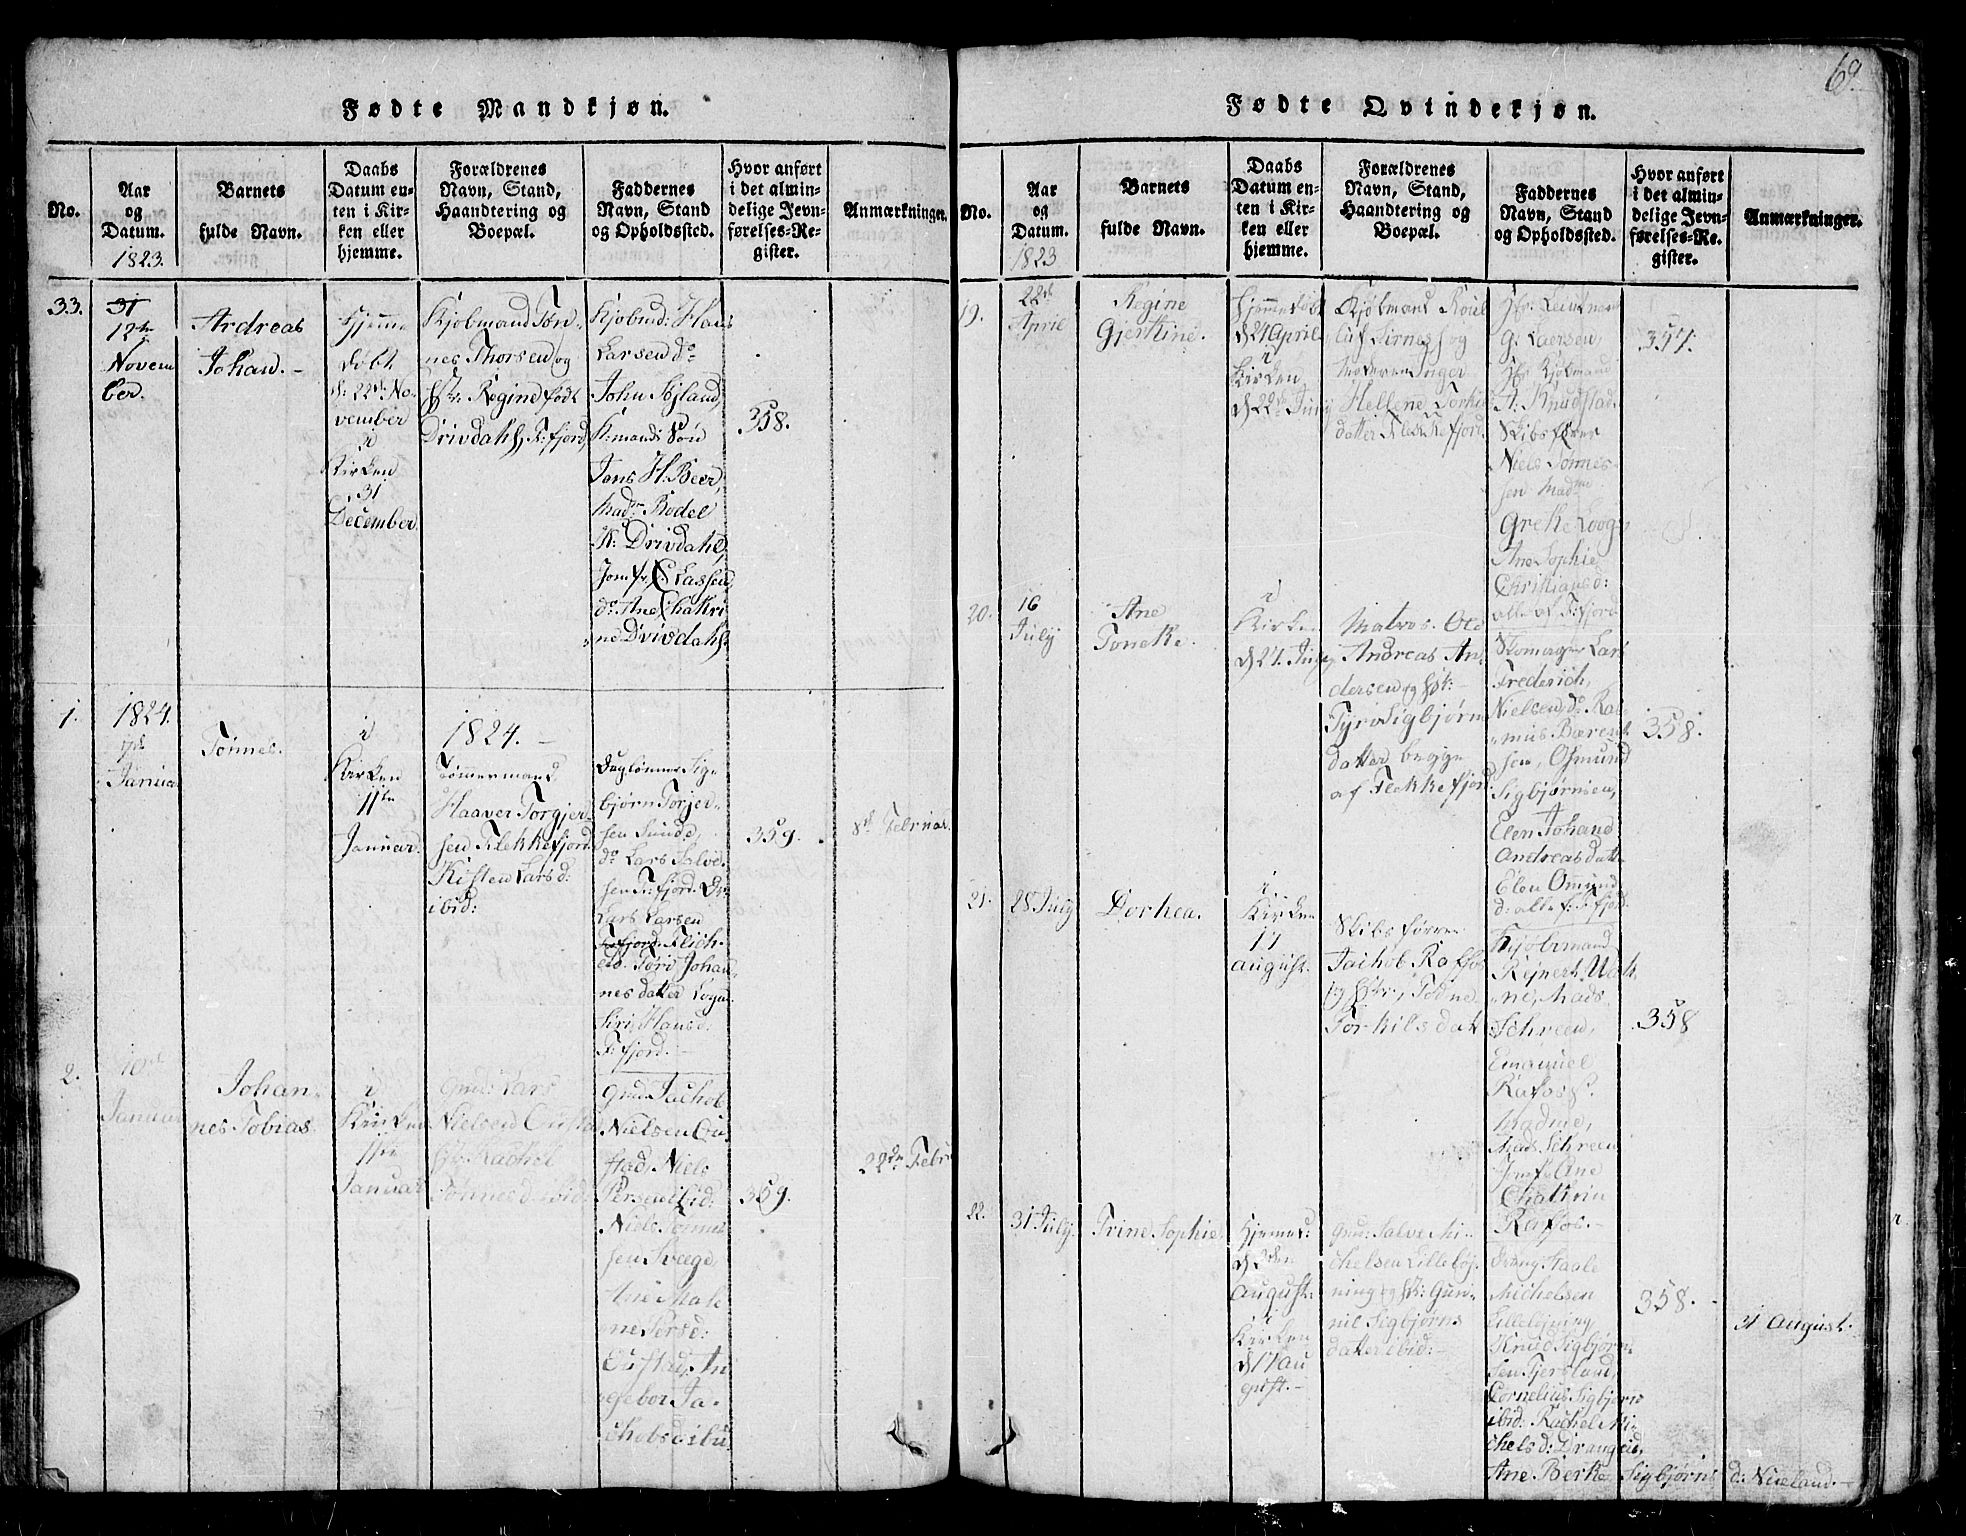 69.
Fødte Mandkjøn.
No.
Aar
og
Datum.
1823.
Barnets
fulde Navn.
Daabs
Datum en-
ten i Kir-
ken eller
hjemme.
Forældrenes
Navn, Stand,
Haandtering og
Boepæl.
Faddernes
Navn, Stand
og Opholdssted.
Hvor anført
i det almin-
delige Jevn-
førelses-Re-
gister.
Anmærkninger.
33.
31
12te
Novem
ber.
Andreas
Johan. -
Hjemme
døbt
d: 22de No-
vember
i
Kirken
31
December.
Kjøbmand Tøn-
nes Thorsen og
Hstr. Regine født
Drivdahl, F:fjord,
Kjøbmd: Hans
Larsen do
John Søjland,
K:mands Søn
Jans H. Beer,
Madm Bodel
K: Drivdahl,
Jomfr: S Lassen,
do Ane Chatri-
ne Drivdahl.
358.
1.
1824.
7de
Januar
Tønnes.
i
Kirken
11te
Januar.
1824. -
Tømmermand
Haaver Torgjer-
sen Flekkefjord.
Kisten Larsd:
ibid:
Daglønner Sig-
bjørn Torjer-
sen Sunde,
do Lars Salve-
sen F:fjord.
Lars Larsen
Tøri Johan-
nes datter Logn
Siri Hansd:
F:fjord. -
359.
8de Februar.
2.
10de
Januar
Johan-
nes Tobias.
i
Kirken
11te
Januar
Gmd: Lars
Nielsen Oustad
Hstr Rachel
Tønnesd: ibid:
Gmd Jachob
Nielsen Ou-
stad, Niels
Persen ibid:
Niels Tønne-
sen Svege,
Ane Mal-
ne Persd:
Oustad, An-
gebor Ja-
chobsd: ibid
359.
22de Febr
Fødte Qvindekjøn.
No.
Aar
og
Datum.
1823
Barnets
fulde Navn.
Daabs
Datum en-
ten i Kir-
ken eller
hjemme.
Forældrenes
Navn, Stand,
Haandtering og
Boepæl.
Faddernes
Navn, Stand
og Opholdssted.
Hvor anført
i det almin-
delige Jevn-
førelses-Re-
gister.
Anmærkninger.
19.
22de
April
Regine
Gjertine.
Hjemmedøbt
d 24 April
i
Kirken
d 22de Juny
Kjøbmand
og
Moderen Inger
Hellene Torkil
datter Flekkefjord.
G: Laersen,
Kjøbmand
A: Knudstad.
Skibsfører
Niels Tønnes-
sen Madme
Grethe Loog
Ane Sophie
Christiansd:
alle af F:fjord
357.
20.
16
July
Ane
Tonette.
i
Kirken
d 27. July
Matros. Ole
Andreas An-
dersen og Hst:
Tyri Sigbjørn
datter begge
af Flekkefjord
Skomager Lars
Frederich,
Nielsen, do Ra-
mus Bærent-
sen, Osmund
Sigbjørnsen,
Elen Johand
Andreas datt-
Elen Omund
d: alle f: F:fjord
358.
21.
28 July
Dorthea.
i
Kirken
17
August.
Skibsfører
Jachob Rafos
og Hstr, Todne
Torkilsdatt
Kjøbmand
Rejnert
ne, Mads
Schreen,
Emanuel
Rafos
Madme,
Mads Schreen
Jomf: Ane
Chatrin
Rafos. -
358
22.
31 July.
Trine Sophie
Hjemme d:
d 3den
August.
Kirken
d 17 Au
gust. -
Gmd: Salve Mi-
chelsen Lilleløj-
ning og Hst: Gun-
nil Sigbjørns
datter ibid: -
Dreng Staale
Michelsen
Lilleløjning
Knud Sigbjørn-
sen Fjersland,
Cornelius Sigbjørn
ibid: Rachel Mi-
chels d: Drangeid,
Ane Berte Sigbjørns d: Nuland. -
358.
31 August.